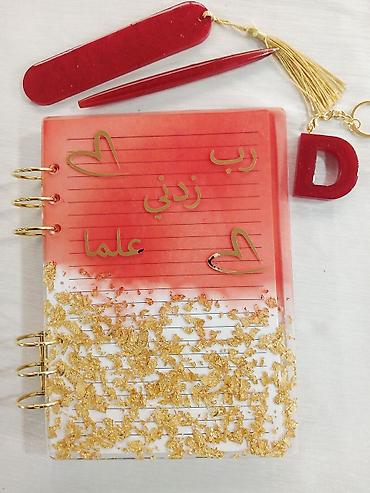 رب
زدني
علما
D